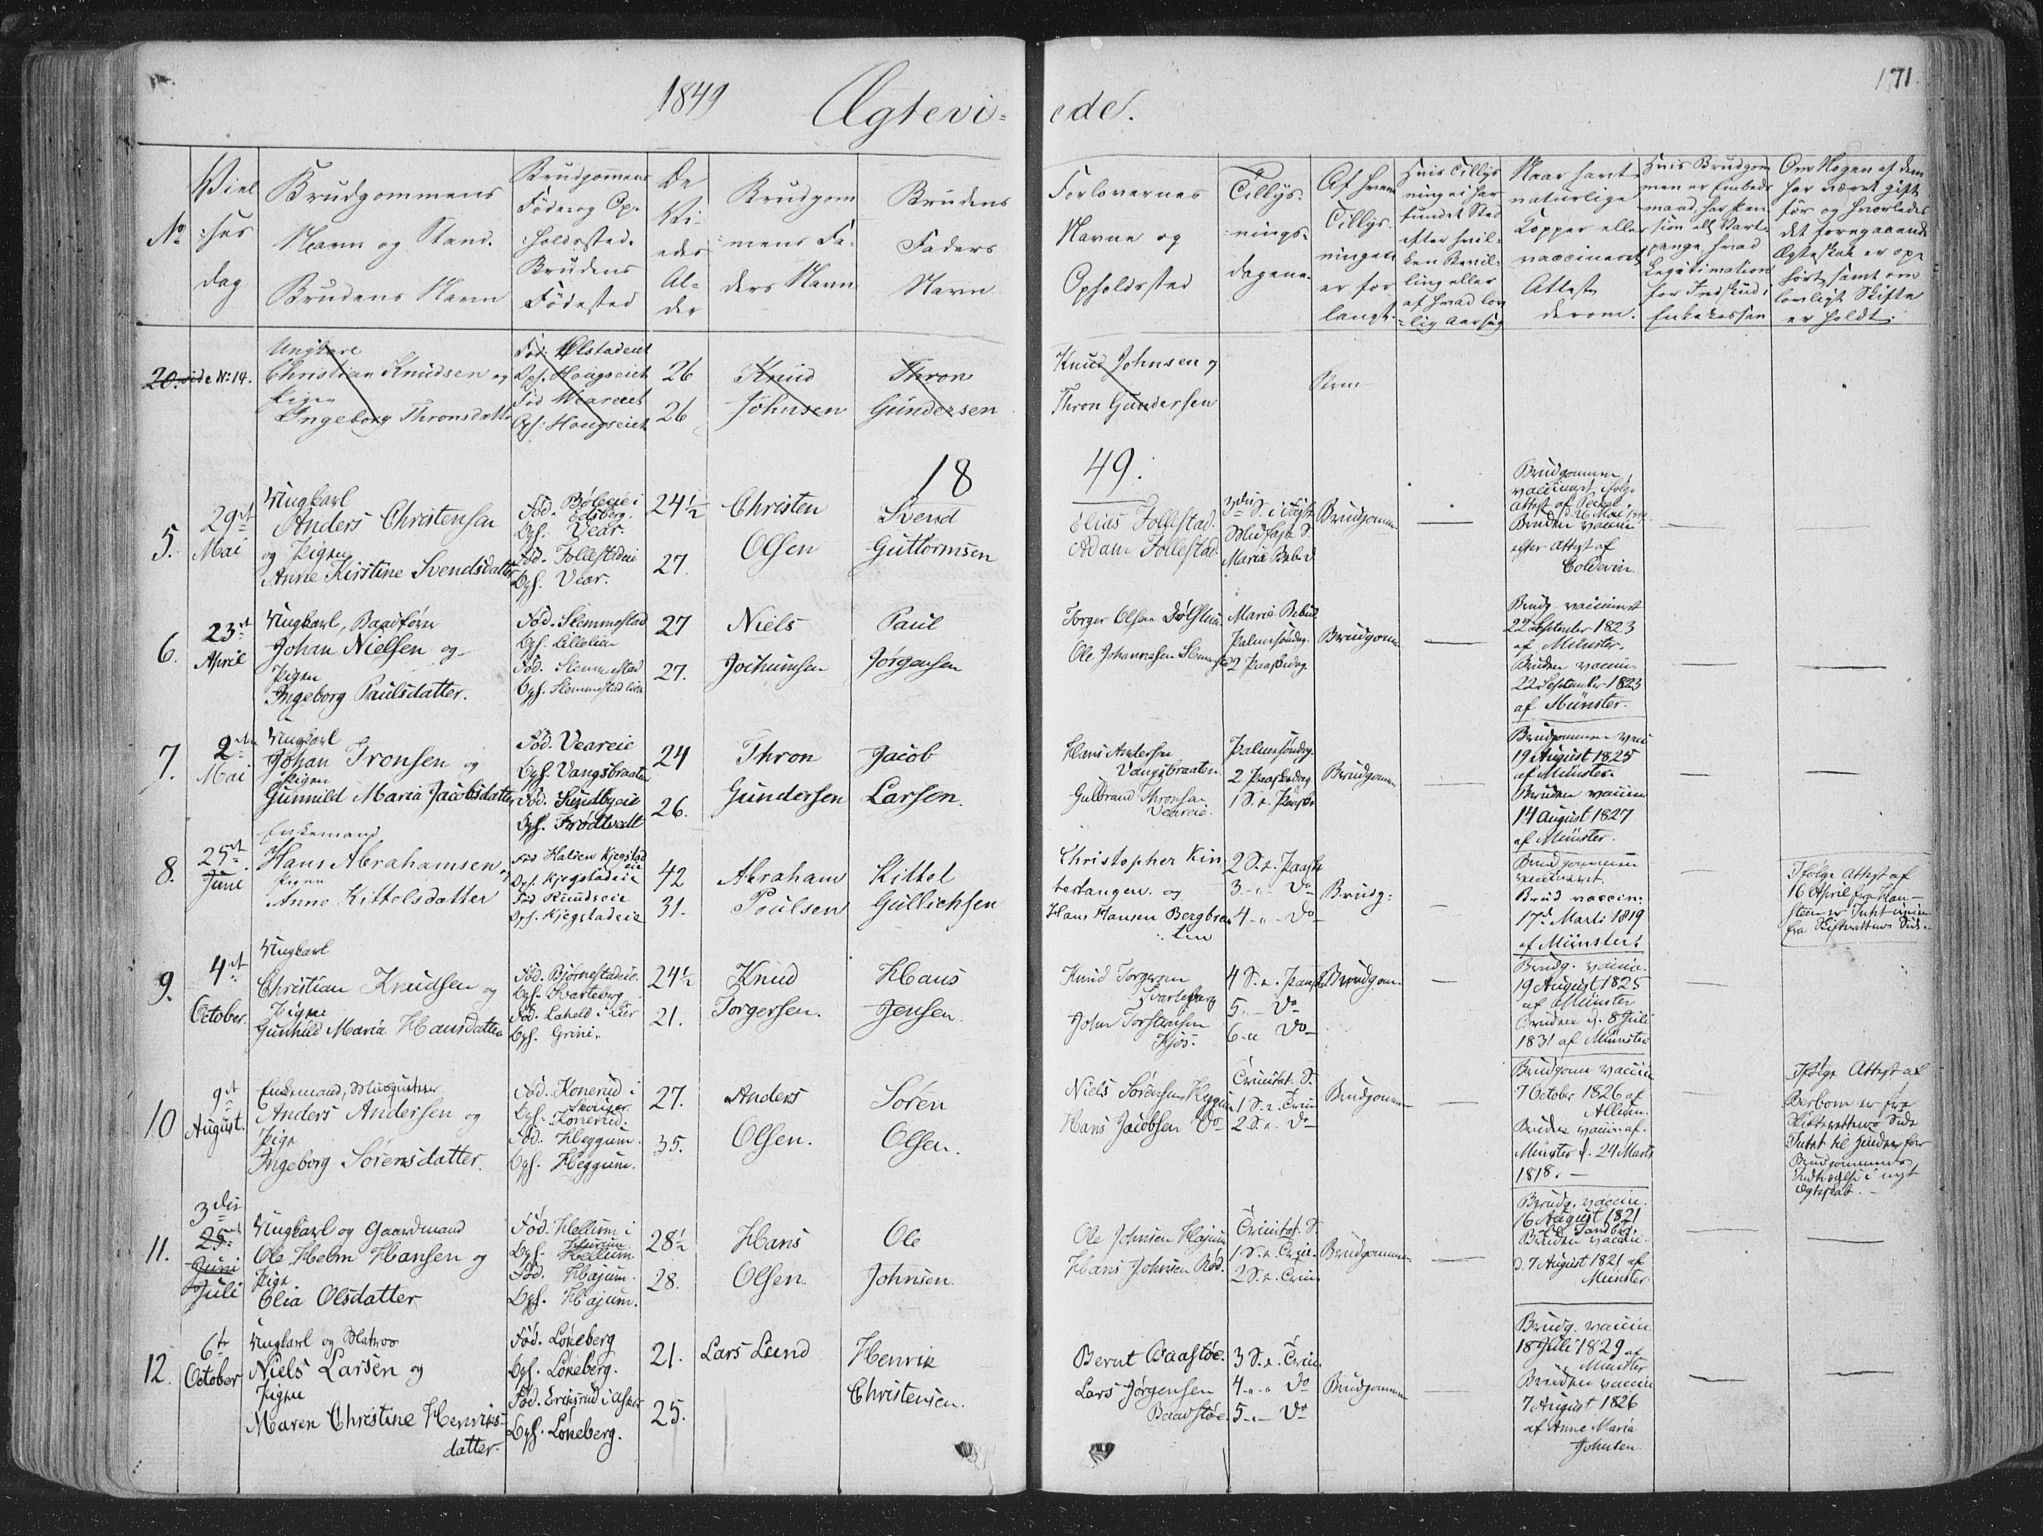 1849 Ægtevi=
ede.
171.
No
Viel
:ses
dag
Brudgommens
Navn og Stand.
Brudens Navn
Brudgomens
Føde og Op-
:holdssted.
Brudens
Fødested
De
Vi-
edes
Al-
der
Brudgom
mens Fa-
ders Navn
Brudens
Faders
Navn
Forlovernes
Navne og
Opholdssted
Tillys-
nings-
dagene
Af hvem
Tillys-
ningen
er for
langt.
Hvis Tillys
ning ei har
fundet Sted
efter hvil-
ken Bevil-
ling eller
af hvad lov
-lig Aarsag
Naar havt
naturlige
Kopper eller
vaccineret
Attest
derom.
Hvis Brudgom
men er Embeds
mand, har Pen
sion ell. Vart-
penge, hvad
Legitimation
for Indskud i
Enkekassen
Om Nogen af dem
har været gift
før og hvorledes
det foregaaende
Ægteskab er op-
hört, samt om
lovligt Skifte
er holdt.
20. vide No 14.
Ungkarl
Christian Knudsen og
Pigen
Ingeborg Thronsdatter
Fød. Olstadeiet
Oph. Hougseiet
Fød Weareiet
Oph. Hougseiet
26
26
Knud
Johnsen
Thron
Gundersen
Knud Johnsen og
Thron Gundersen
18
49.
5.
29et
Mai
Ungkarl
Anders Christensen
og Pigen
Anne Kirstine Svendsdatter
Fød. Böleeie i
Edsberg.
Oph. Vear.
Fød. Follestadeie
Oph. Vear.
24½
27.
Christen
Olsen
Svend
Guttormsen
Elias Follestad.
Adam Follestad.
3die S. i Faste
Midfaste S.
Mariæ Bebud
Brudgommen
Brudgommen
vaccineret ifølge
Attest af
Bruden vaccin
efter Attest af
Coldevin.
6.
23de
April
Ungkarl, Baadfører
Johan Nielsen og
Pigen
Ingeborg Paulsdatter.
Fød. Slemmestad
Oph. Lilleleien
Fød. Slemmestad
Oph. Slemmestad leien
27
27.
Niels
Jochumsen
Paul
Jørgensen
Torger Olsen
Ole Johannesen Slemmestad
Mariæ Bebud.
Palmesøndag.
2 Paaskedag.
Brudgommen
Brudg. vaccineret
22 September 1823
af Münster.
Bruden vaccin.
22 September 1823
af Münster.
7.
2den
Mai
Ungkarl
Johan Tronsen og
Pigen
Gunnild Maria Jacobsdatter
Fød. Veareie
Oph. Vangsbraaten
Fød. Sundbyeie
Oph. Frødtvedt
24
26.
Thron
Gundersen
Jacob
Larsen.
Hans Andersen
Vangsbraaten.
Gulbrand Thronsen
Veareie.
Palmesøndag.
2 Paaskedag
1 S. e. Paaske
Brudgommen
Brudgommen vacc
19 August 1825
af Münster.
Bruden vaccin
14 August 1827
af Münster.
8.
25et
Juni
Enkemand
Hans Abrahamsen og
Pigen
Anne Kittelsdatter
Fød Halsen Kjegstad
eie
Oph. Kjegstadeie
Fød Ruudseie
Oph. Kjegstadeie
42
31.
Abraham
Poulsen
Kittel
Gullichsen
Christopher Kin
bertangen. og
Hans Hansen Bergbraa
:ten
2 S. e. Paaske
3 - " - Do
4 - " - Do
Brudg:
Brudgommen
vaccineret.
Brud vaccin:
17d Marti 1819
af Münster.
Ifølge Attest af
16 April fra
er Intet
fra Skifterettens Side.
9.
4et
October.
Ungkarl
Christian Knudsen og
Pigen
Gunhild Maria Hansdatter
Fød. Bjørnestadeie.
Oph. Svarteberg
Fød. Laheld i Lier
Oph. Grini.
24½
21.
Knud
Torgersen.
Hans
Jensen.
Knud Torgersen
Svarteberg
John Torstensen
Kjos.
4 S. e. Paaske
5 - " Do
6 - " Do
Brudgom.
Brudg. vaccin.
19 August 1825
af Münster
Bruden d. 8 Juli
1831 af Münster
10
9et
August.
Enkemand, Musqueteer
Anders Andersen og
Pige
Ingeborg Sørensdatter.
Fød. Konerud i
Skouger
Oph. Konerud.
Fød. Heggum.
Oph. Heggum.
27.
35.
Anders
Olsen.
Søren
Olsen.
Niels Sørensen Heggum
Hans Jacobsen Do
Trinitat. S.
1 S. e. Trin
2 S. e. Do
Brudgommen
Brudgom vaccin
7 October 1826 af
Allum.
Bruden vaccin af
Münster d. 24 Marts
1818.
Ifølge Attest af
er fra
Skifterettens Side
Intet til Hinder for
Brudgommens
Indtrædelse i nyt
Ægteskab.
11.
3die
25et
Juni
Juli
Ungkarl og Gaardmand
Ole Helm Hansen og
Pige
Olia Olsdatter
Fød. Hellum i
Oph. Hellum
Fød. Hajum.
Oph. Hajum.
28½
28.
Hans
Olsen.
Ole
Johnsen.
Ole Johnsen Hajum
Hans Johnsen Rød.
Trinitat. S.
1 S. e. Trin.
2 S. e. Trin.
Brudgommen
Brudg. vaccin.
16 August 1821
Bruden vaccin
d. 7 August 1821 af
Münster.
12.
6te
October
Ungkarl og Matros
Niels Larsen og
Pigen
Maren Christine Henriks-
datter.
Fød. Løkeberg
Oph. Løkeberg.
Fød. Eriksrud i Asker
Oph. Løkeberg.
21.
25.
Lars Lund
Henrik
Christensen.
Bernt Baastøe.
Lars Jørgensen
Baadstøe.
3 S. e. Trin.
4 - " Do
5 - " Do
Brudgommen
Brudg. vaccin
18 Juli 1829 af
Münster
Bruden vaccin
7 August 1826
af Anne Maria
Johnsen